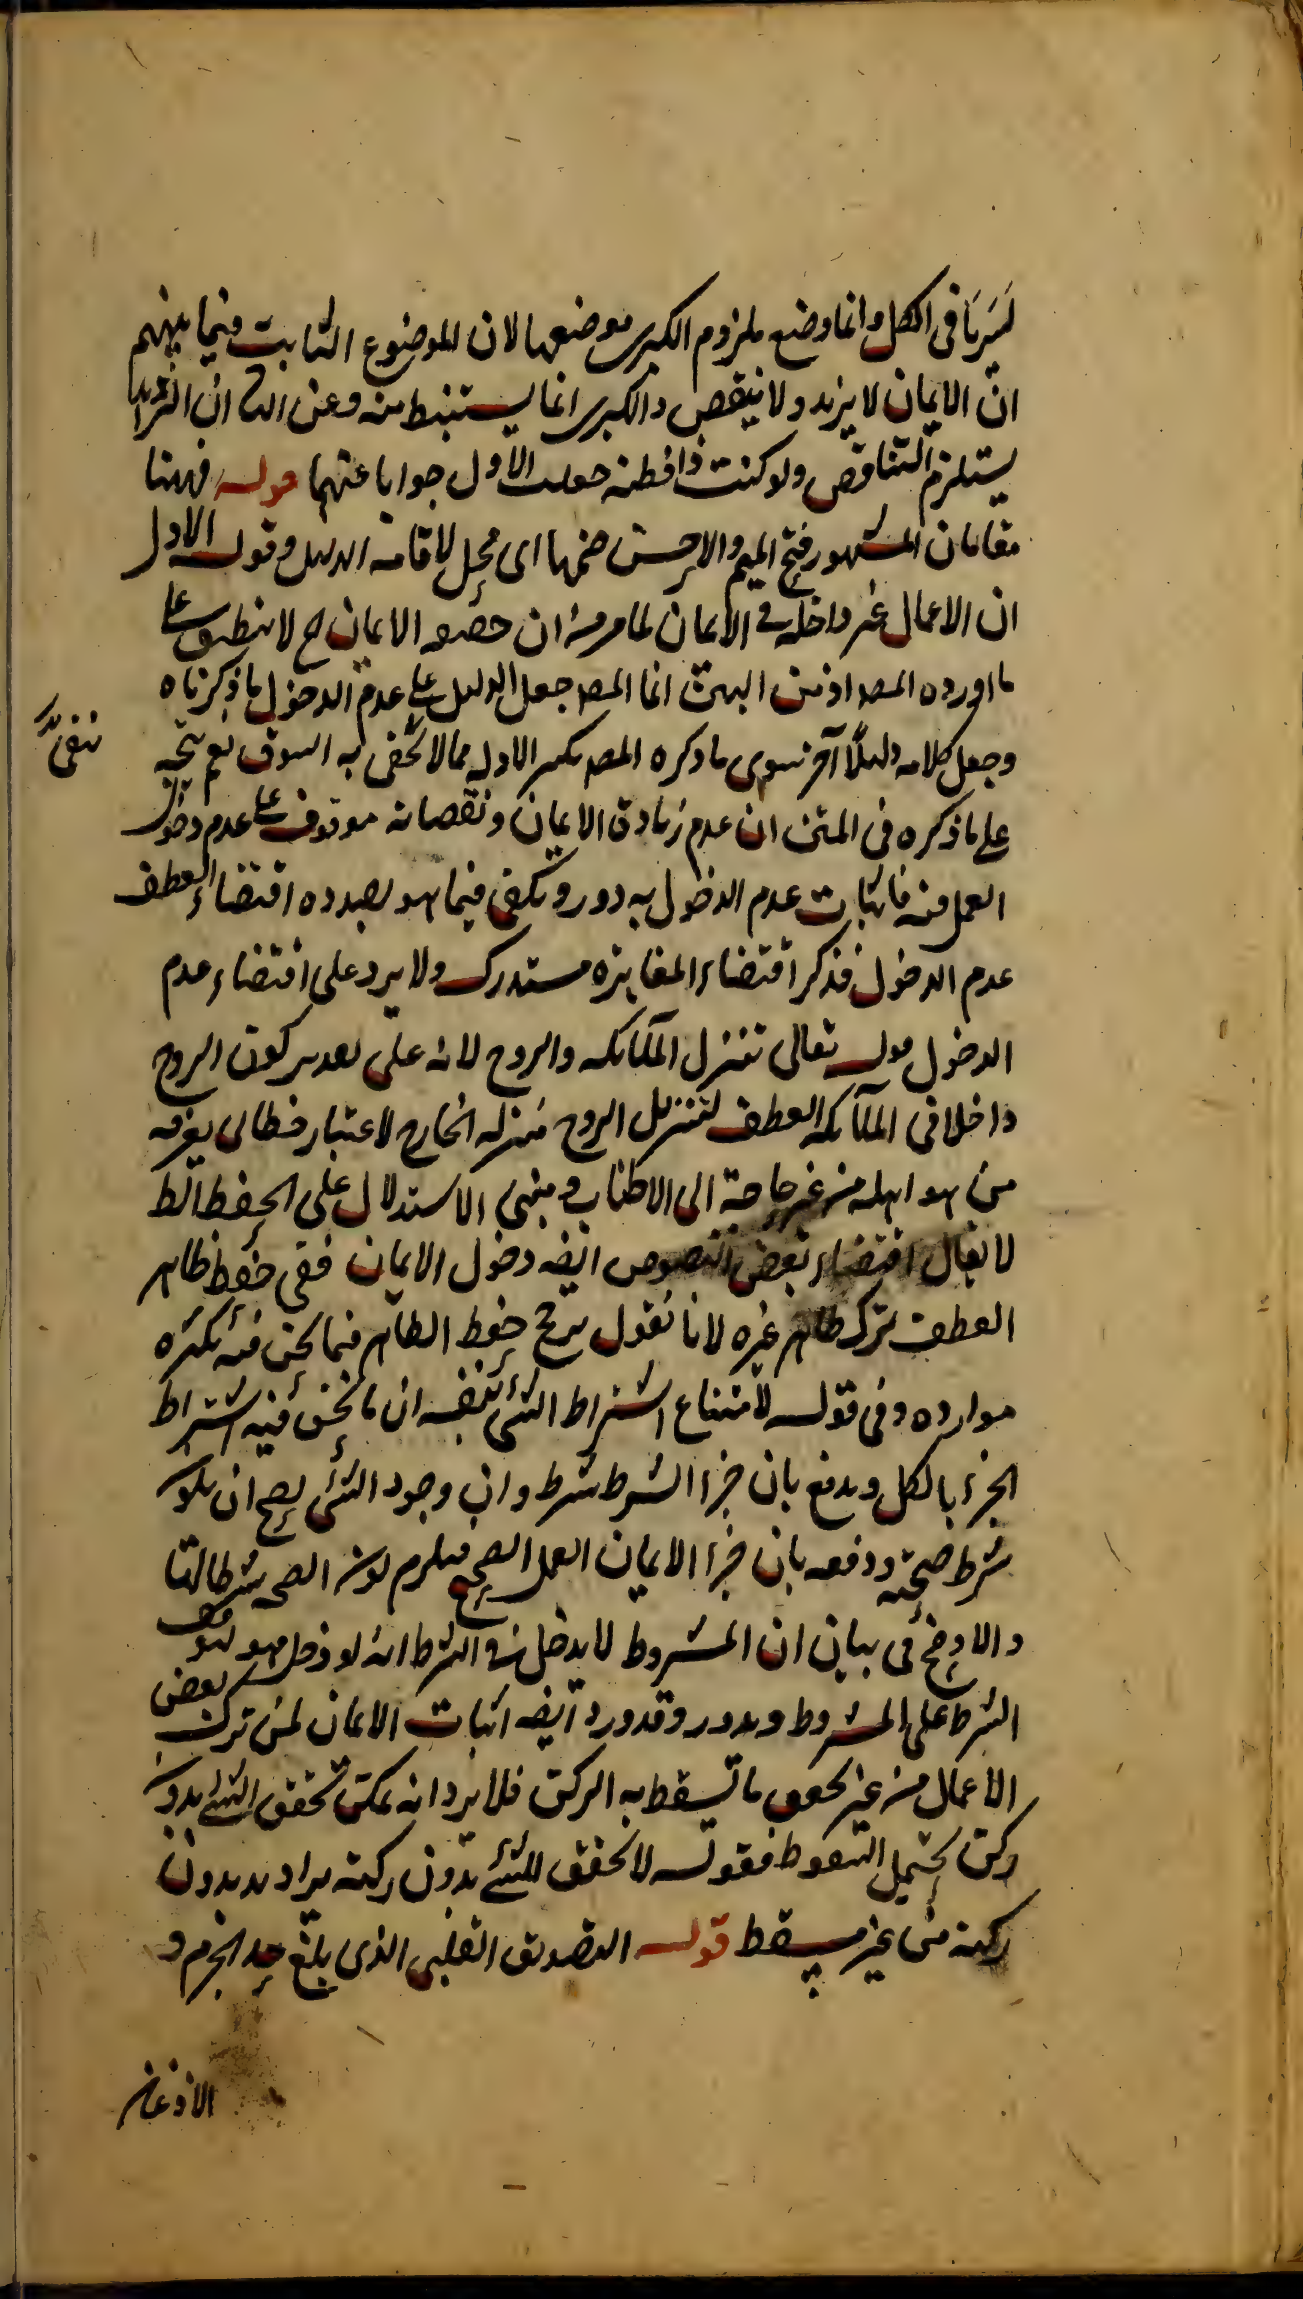 في الكل وانما وضع ملزوم الكبرى موضعها لان الموضوع الثابت فيما بينهم
ان الايمان لا يزيد ولا ينقص والكبرى انما يستنبط منه وعن الثا ان التزايد
يستلزم التناقص ولو كنت ذا فطنة جعلت الاول جوابا عنهما قوله فههنا
مقامان المشهور فتح الميم والاحسن ضمها اى محل لاقامة الدليل وقوله الاول
ان الاعمال غير داخلة في الايمان لما مر من ان حقيقة الايمان ح لا ينطبق على
ما اورده المص اذ من انما المص جعل الدليل على عدم الدخول ما ذكرناه
وجعل كلامه دليلا آخر سوى ما ذكره المص مما لا يخفى به السوق نعم يتجه
على ما ذكره في المتن ان عدم زيادة الايمان ونقصانه موقوف على عدم دخول
العمل فيه فاثبات عدم الدخول به دور ويكفي فيما هو بصدده اقتضاء العطف
عدم الدخول فذكر اقتضاء المغايرة مستدرك ولا يرد على اقتضاء عدم
الدخول قوله تعالى تنزل الملائكة والروح لانه على تقدير كون الروح
داخلا في الملائكة العطف لتنزيل الروح منزلة الخارج لاعتبار خطابى يعرفه
من هو اهله من غير حاجة الى الاطناب ومبنى الاستدلال على الحفظ الظ
لا يقال اقتضاء بعض النصوص ايضه دخول الايمان ففي حفظ ظاهر
العطف ترك ظاهر غيره لانا نقول يرجح حفظ الظاهر فيما نحن فيه بكثرة
موارده وفي قوله لامتناع اشتراط الشئ بنفسه ان ما نحن فيه اشتراط
الجزء بالكل ويدفع بان جزء الشرط شرط وان وجود الشئ يصح ان يكون
شرط صحته ودفعه بان جزء الايمان العمل الصحيح فيلزم كون الصحة شرطا لها
والاوضح في بيان ان المشروط لا يدخل في الشرط انه لو دخل فهو لتوقف
الشرط على المشروط ويدور وقد ورد ايضه اثبات الايمان لمن ترك بعض
الاعمال من غير تحقق ما يسقط به الركن فلا يرد انه يمكن تحقق الشئ بدون
ركن يحتمل السقوط فقوله لا تحقق للشئ بدون ركنه يراد به بدون
ركنه من غير مسقط قوله التصديق القلبى الذى بلغ حد الجزم و
الاذعان